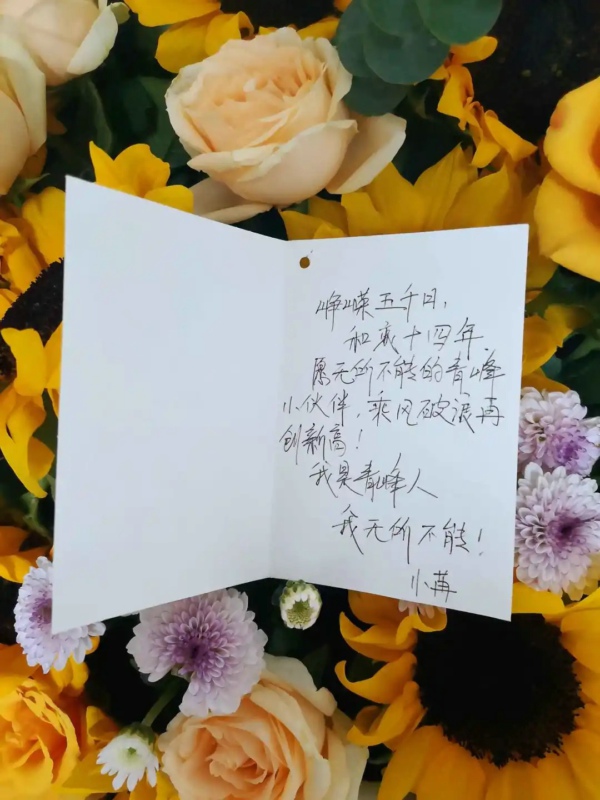 峥嵘五千日，
和衷十四年，
愿无所不能的青峰
小伙伴，乘风破浪再
创新高！
我是青峰人
我无所不能！
小苒